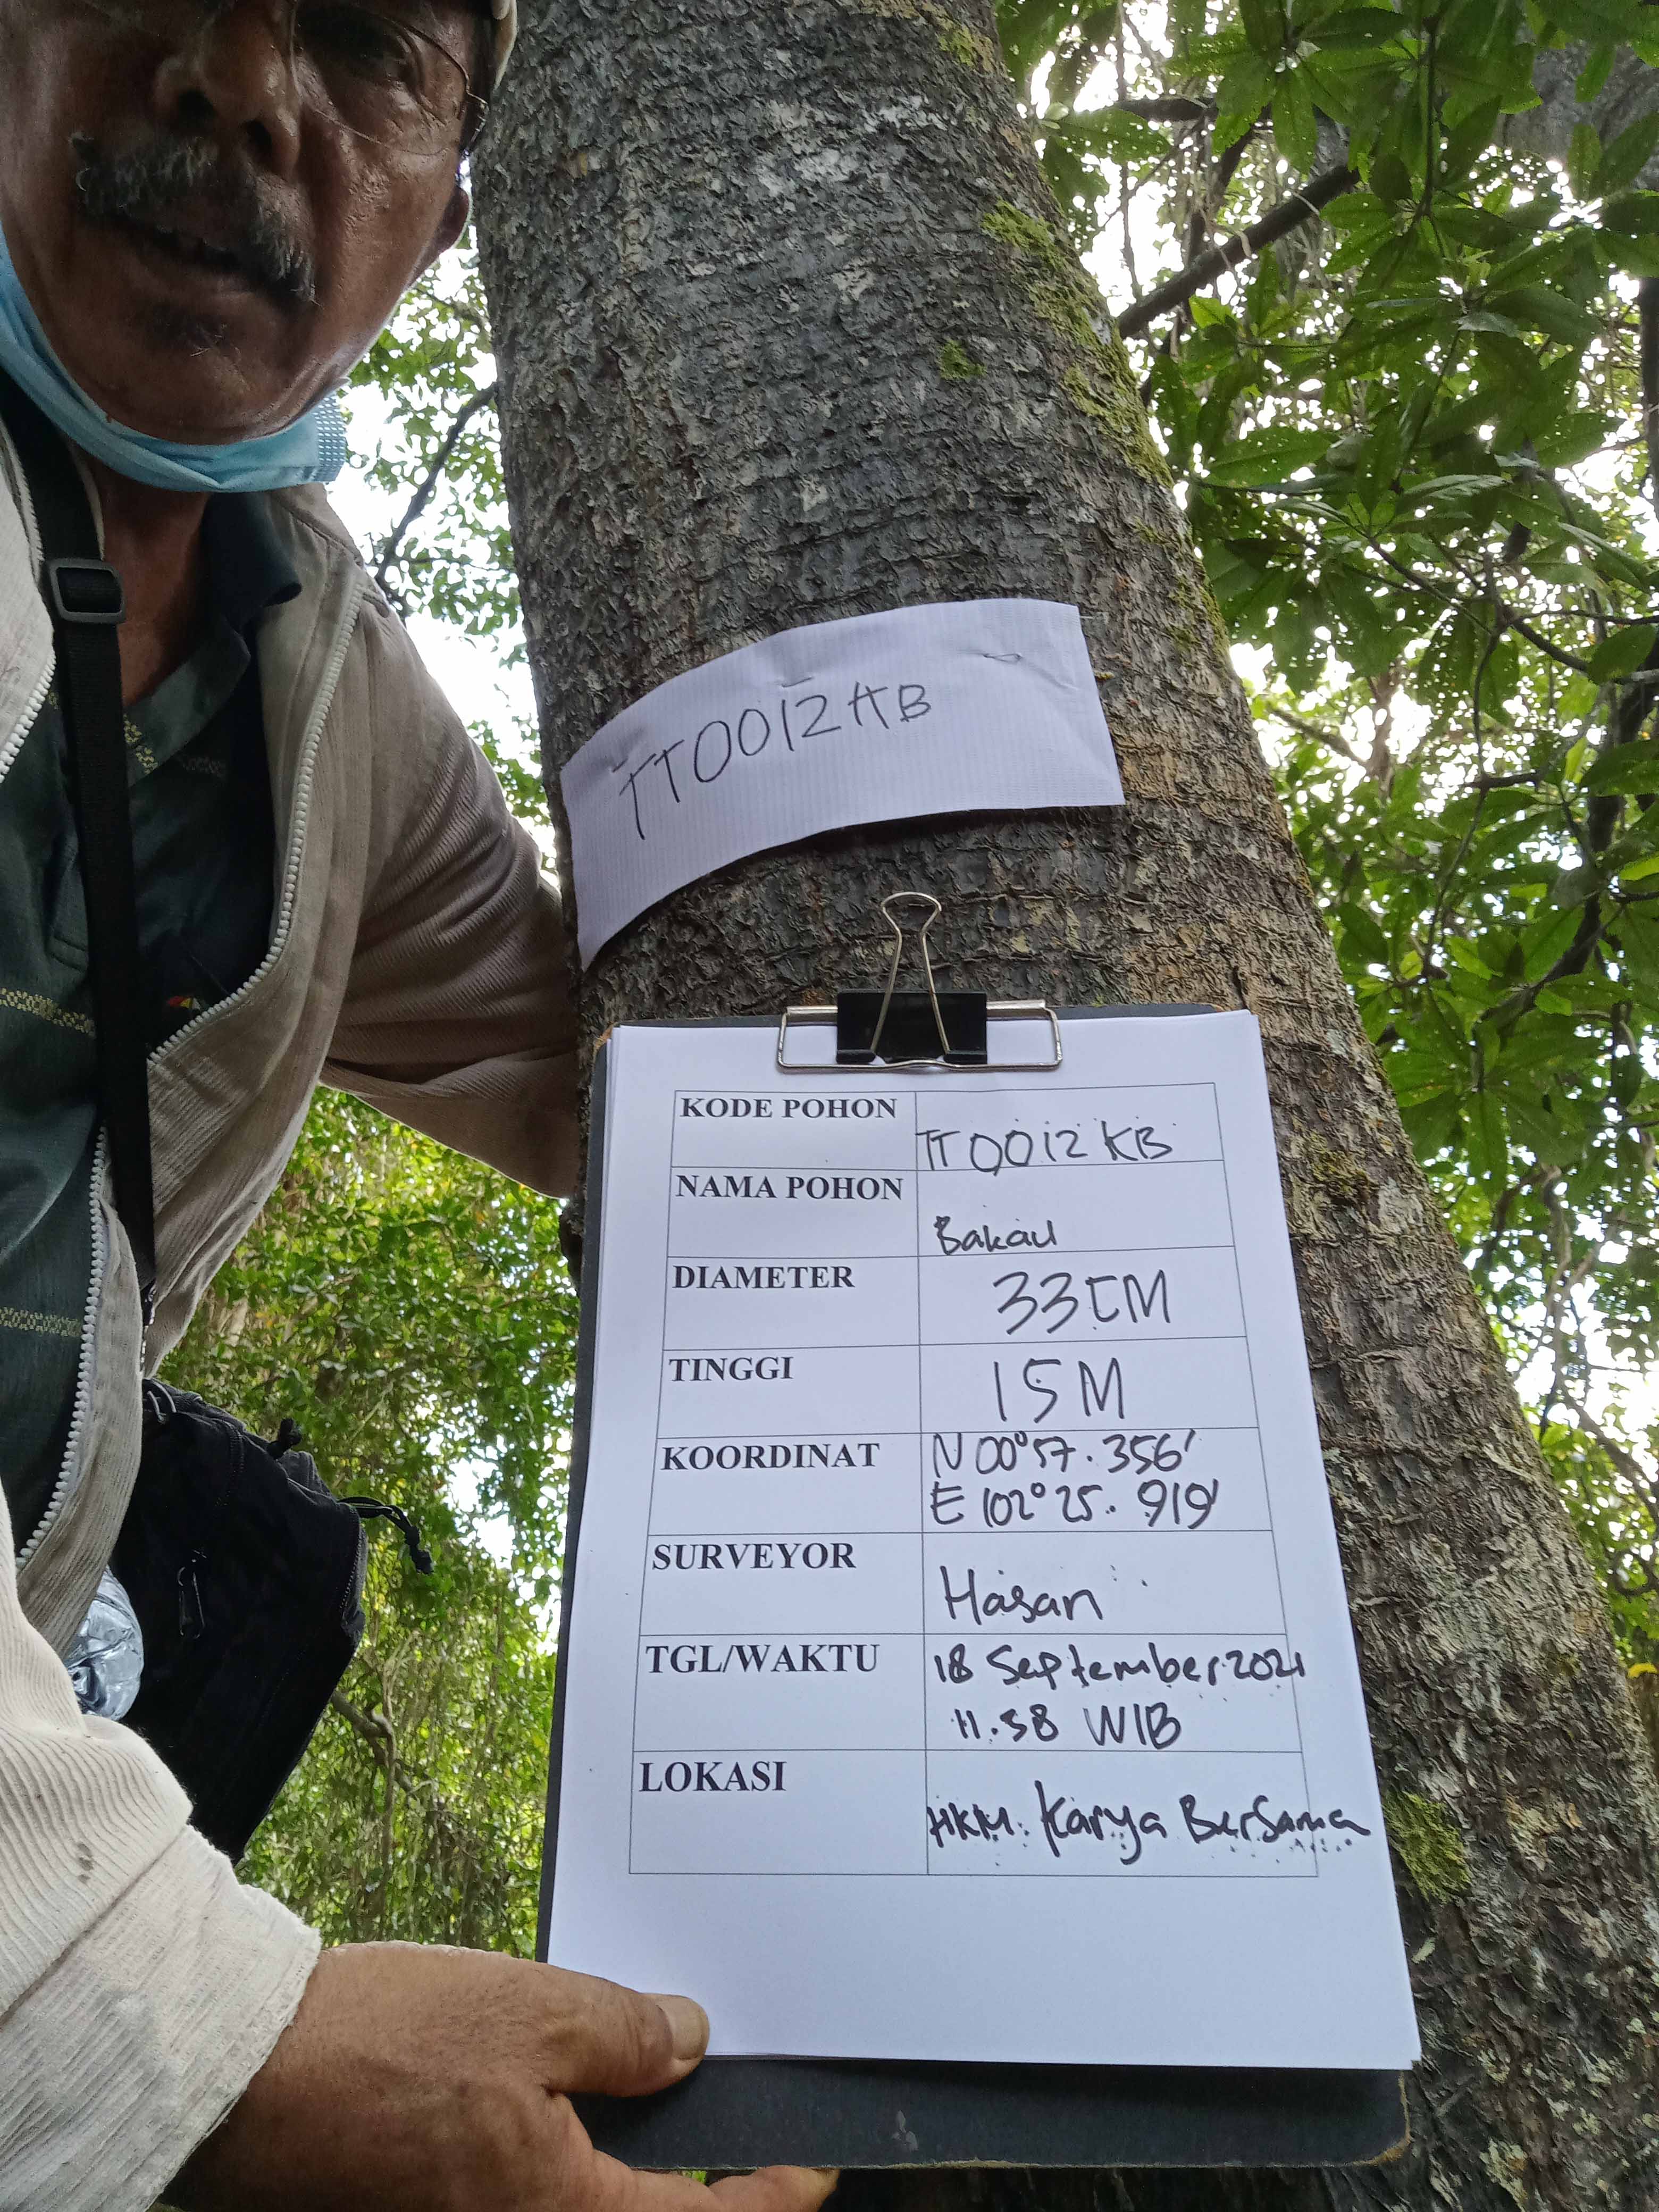 TT0012KB
KODE POHON TT0012KB
NAMA POHON Bakau
DIAMETER 33CM
TINGGI 15M
KOORDINAT N 00°57.356'
E 102°25.919'
SURVEYOR Hasan
TGL/WAKTU 18 September 2021
11.38 WIB
LOKASI HKM. Karya Bersama